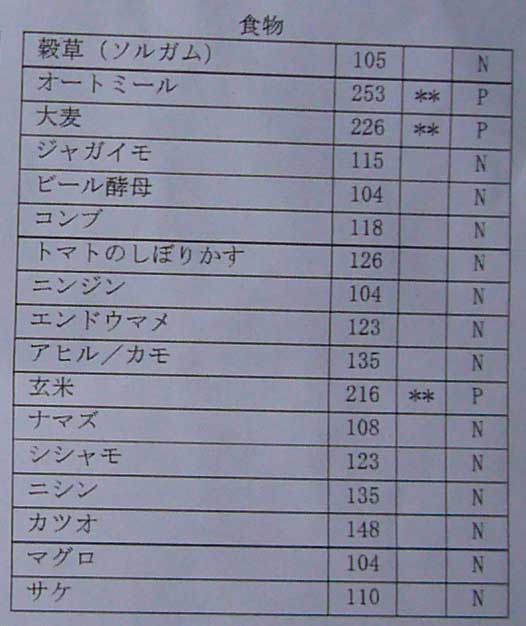 食物
穀草（ソルガム） 105 N
オートミール 253 ** P
大麦 226 ** P
ジャガイモ 115 N
ビール酵母 104 N
コンブ 118 N
トマトのしぼりかす 126 N
ニンジン 104 N
エンドウマメ 123 N
アヒル／カモ 135 N
玄米 216 ** P
ナマズ 108 N
シシャモ 123 N
ニシン 135 N
カツオ 148 N
マグロ 104 N
サケ 110 N